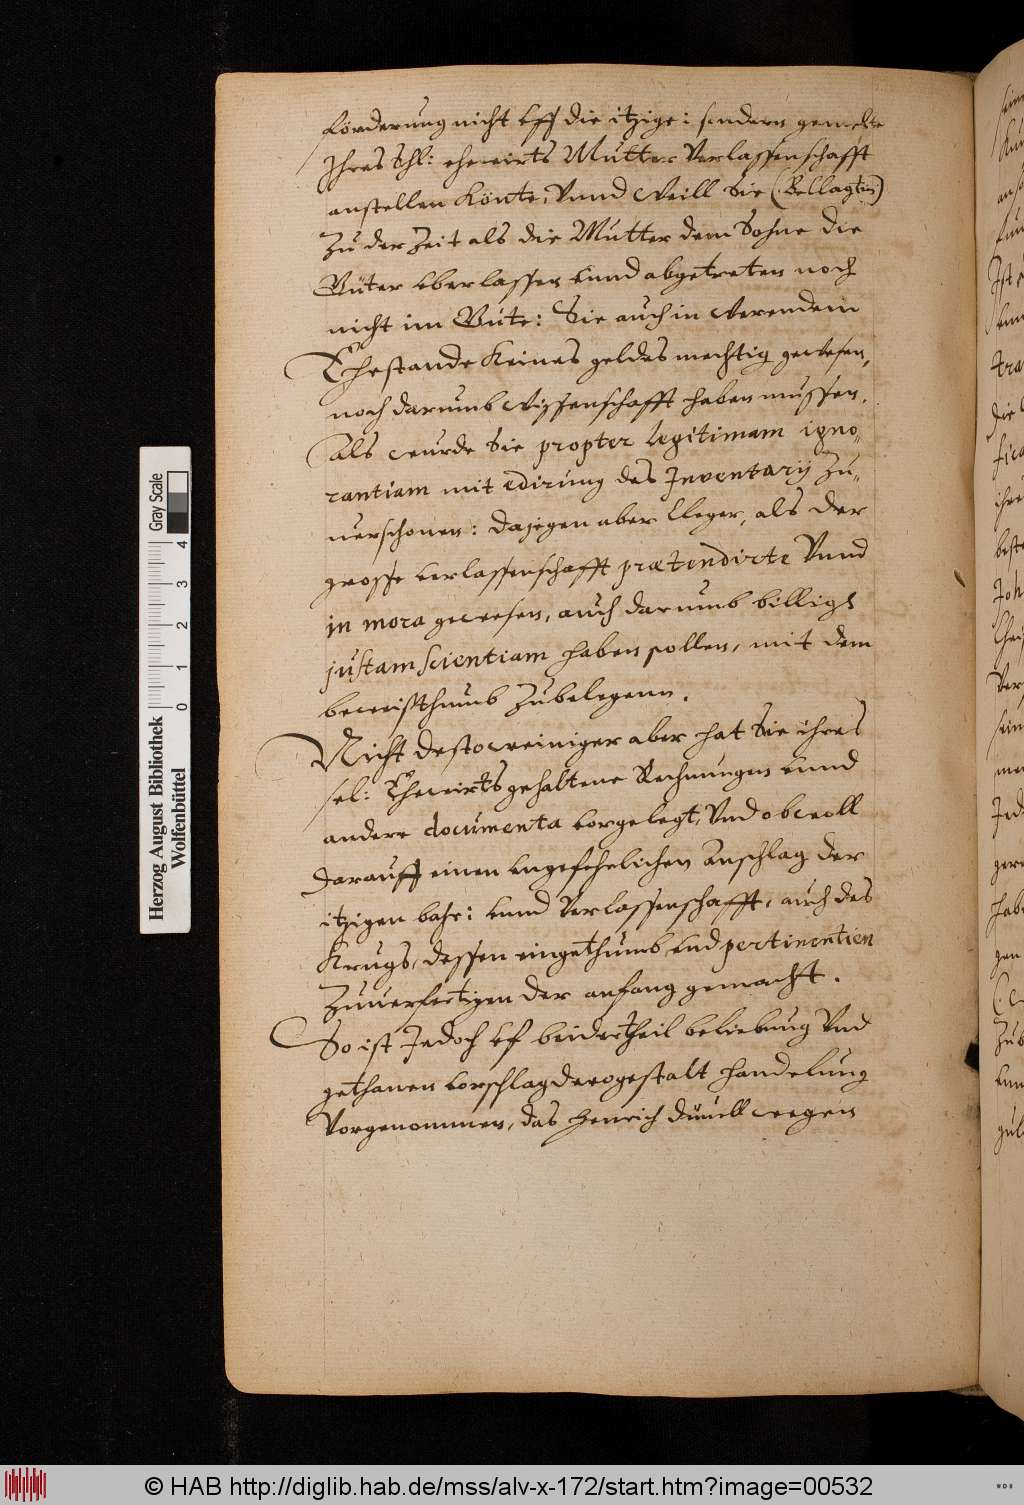 förderung nicht vff die itzige: sondern gemelte
Ihres Shl: ehewirts Mutter Verlassenschafft
anstellen Könte, Vnnd Weill Sie (Bellagtin)
Zu der Zeit als die Mutter dem Sohne die
Güter vberlassen vnnd abgetreten noch
nicht im Gute: Sie auch in werendem
Ehestande Keines geldes mechtig gewesen,
noch darumb wissenschafft haben mussen.
Als wurde Sie propter legitimam igno„
rantiam mit edirung des Inventarij zu„
uerschonen: dajegen aber Kleger, als der
grosse verlassenschafft prætendirte Vnnd
in mora gewesen, auch darumb billigh
justam scientiam haben sollen, mit dem
beweissthumb Zubelegenn.
Nicht destoweiniger aber hat Sie ihres
sel: Ehewirts gehaltene Rechnungen vnnd
andere documenta vorgelegt, Vnd obwoll
darauff einen vngefehrlichen Anschlag der
itzigen bahr: vnnd Verlassenschafft, auch des
Krugs, dessen eingethumb vnd pertinentien
Zuuerfertigen der anfang gemacht.
So ist Jedoch vf beidertheil beliebung Vnd
gethanen vorschlag derogestalt handelung
Vorgenommen, das Henrich Düuell wegen
Herzog August Bibliothek
Wolfenbüttel
0 1 2 3 4
Gray Scale
© HAB http://diglib.hab.de/mss/alv-x-172/start.htm?image=00532